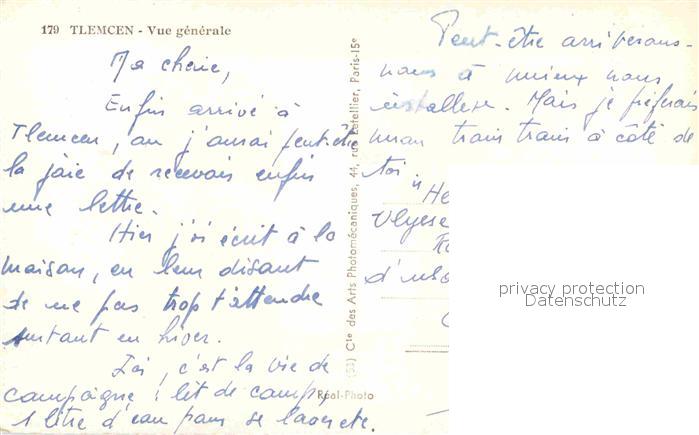 179 TLEMCEN - Vue générale
Ma cherie,
Enfin arrivé à
Tlemcen, ou j'aurai peut-être
la joie de recevoir enfin
une lettre.
Hier j'ai écrit à la
maison, en leur disant
de ne pas trop t'attendre
surtout en hiver.
Ici, c'est la vie de
campagne : lit de camp,
1 litre d'eau pour se laver etc.
Peut-être arriverons-
nous à mieux nous
installer. Mais je préferais
mon train train à côté de
toi
Ulysse
d'
(53) Cie des Arts Photomécaniques, 44, rue Letellier, Paris-15e
Réal-Photo
privacy protection
Datenschutz